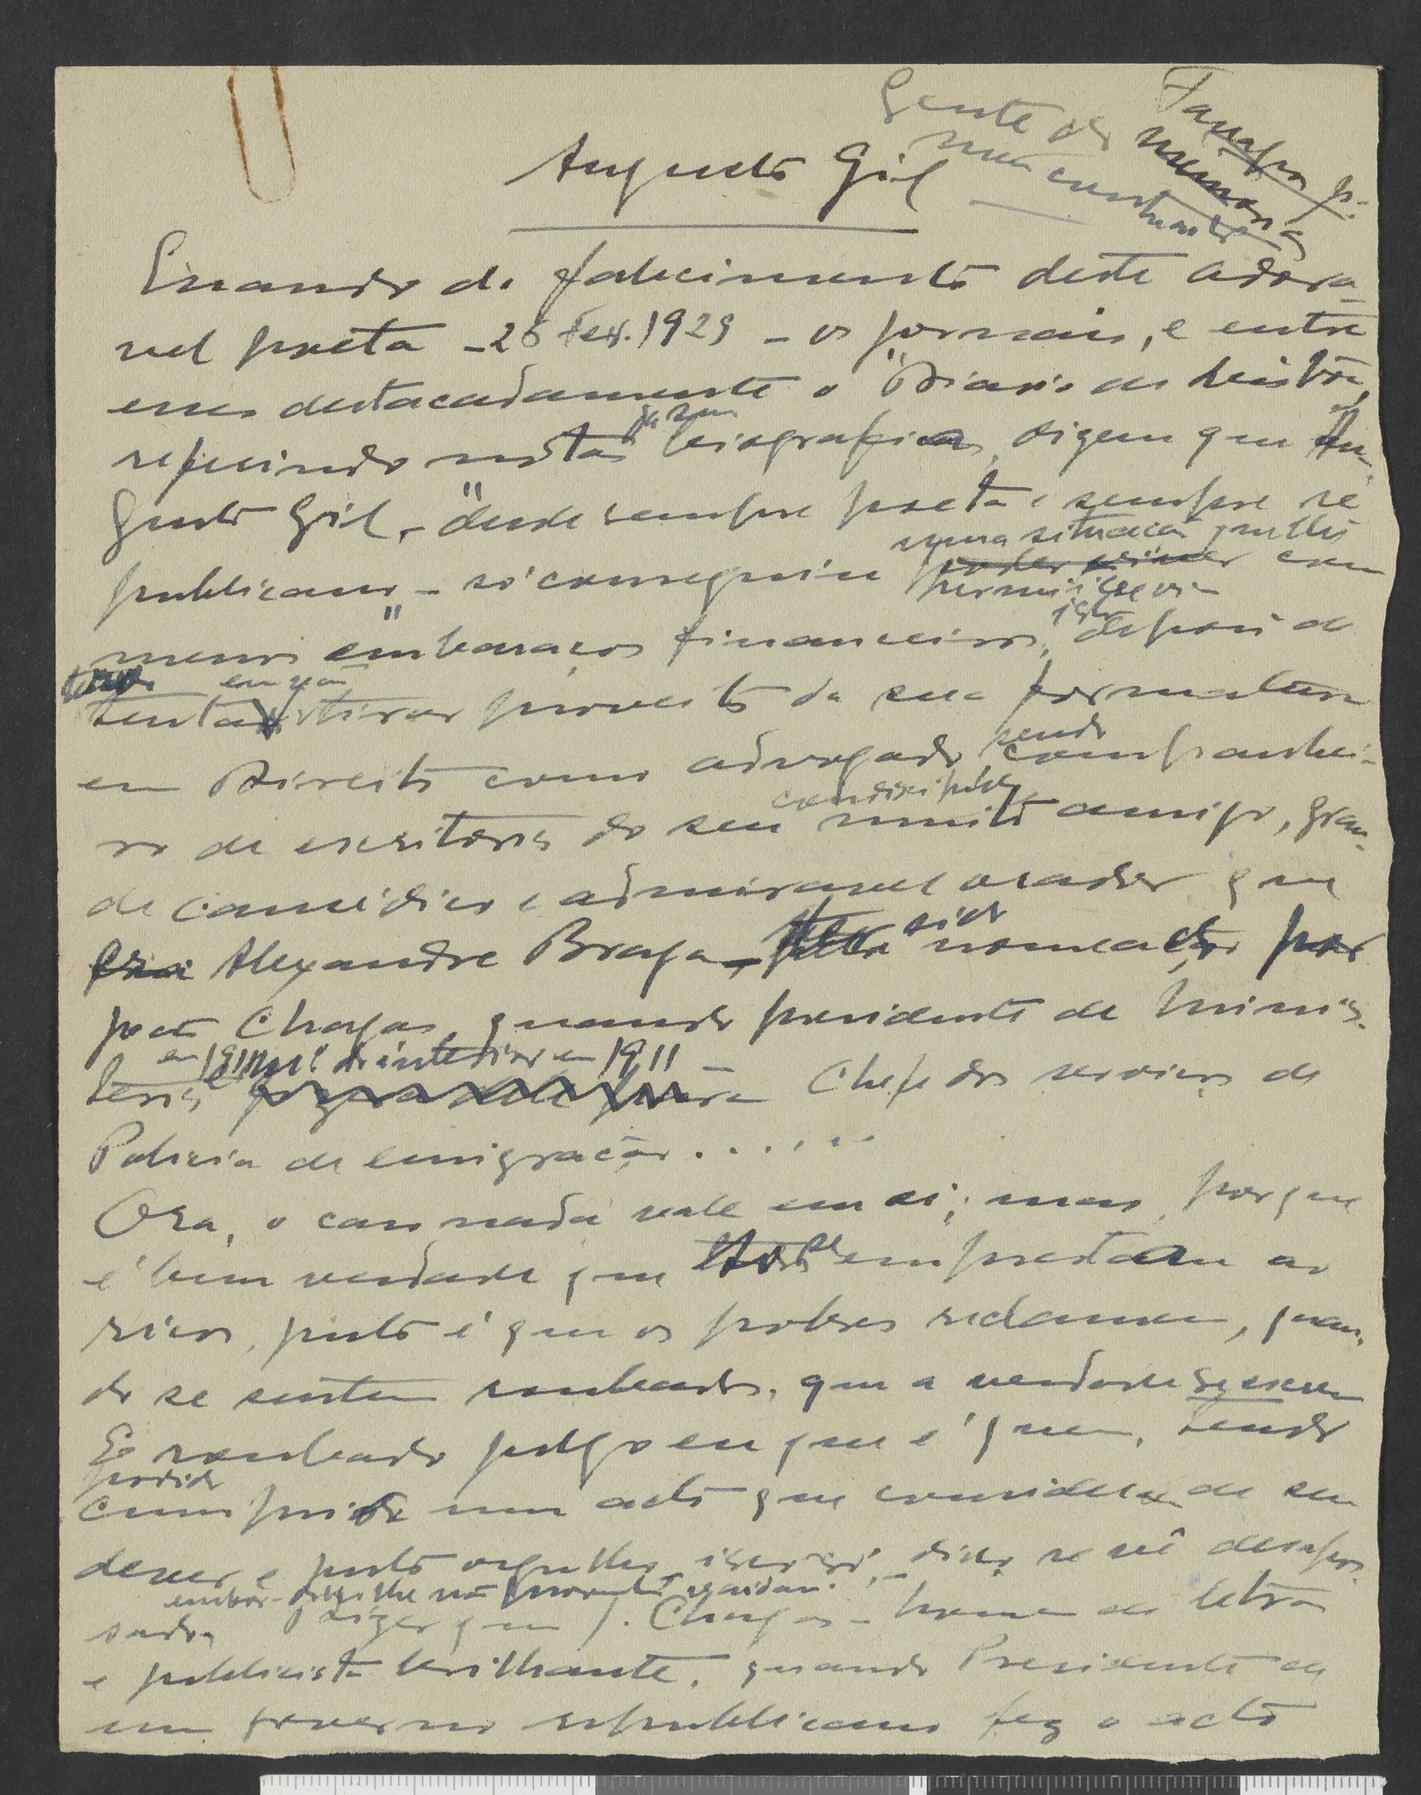 Gente do meu
Augusto Gil
Quando do falecimento deste adora-
vel poeta - 26 Fev. 1929 - os jornais, e entre
esses destacadamente o "Diario de Lisbôa,
referindo notas biograficas, dizem que Au-
gusto Gil, - "desde sempre poeta e sempre re
uma situação que lhe
publicano - só conseguiu poder viver com
menos embaraços financeiros," depois de
em vão
tentar tirar proveito da sua formatura
sendo
em Direito como advogado, companhei-
condiscipulo
ro de escritorio do seu muito amigo, gran-
de causidico e admiravel orador que
sido
era Alexandre Braga, nomeado por
João Chagas, quando presidente de Minis-
em 1911
terio Chefe dos serviços de
Policia de emigração . . . . . .
Ora, o caso nada vale em si; mas, porque
é bem verdade que se emprestam aos
ricos, justo é que os pobres reclamem, quan-
do se sentem roubados, que a verdade
E roubado julgo eu que é quem, tendo
podido
cumprido um acto que considera de seu
dever e justo orgulho,
dizer que J. Chagas - homem de letras
e publicista brilhante, quando Presidente de
um governo republicano fez o acto